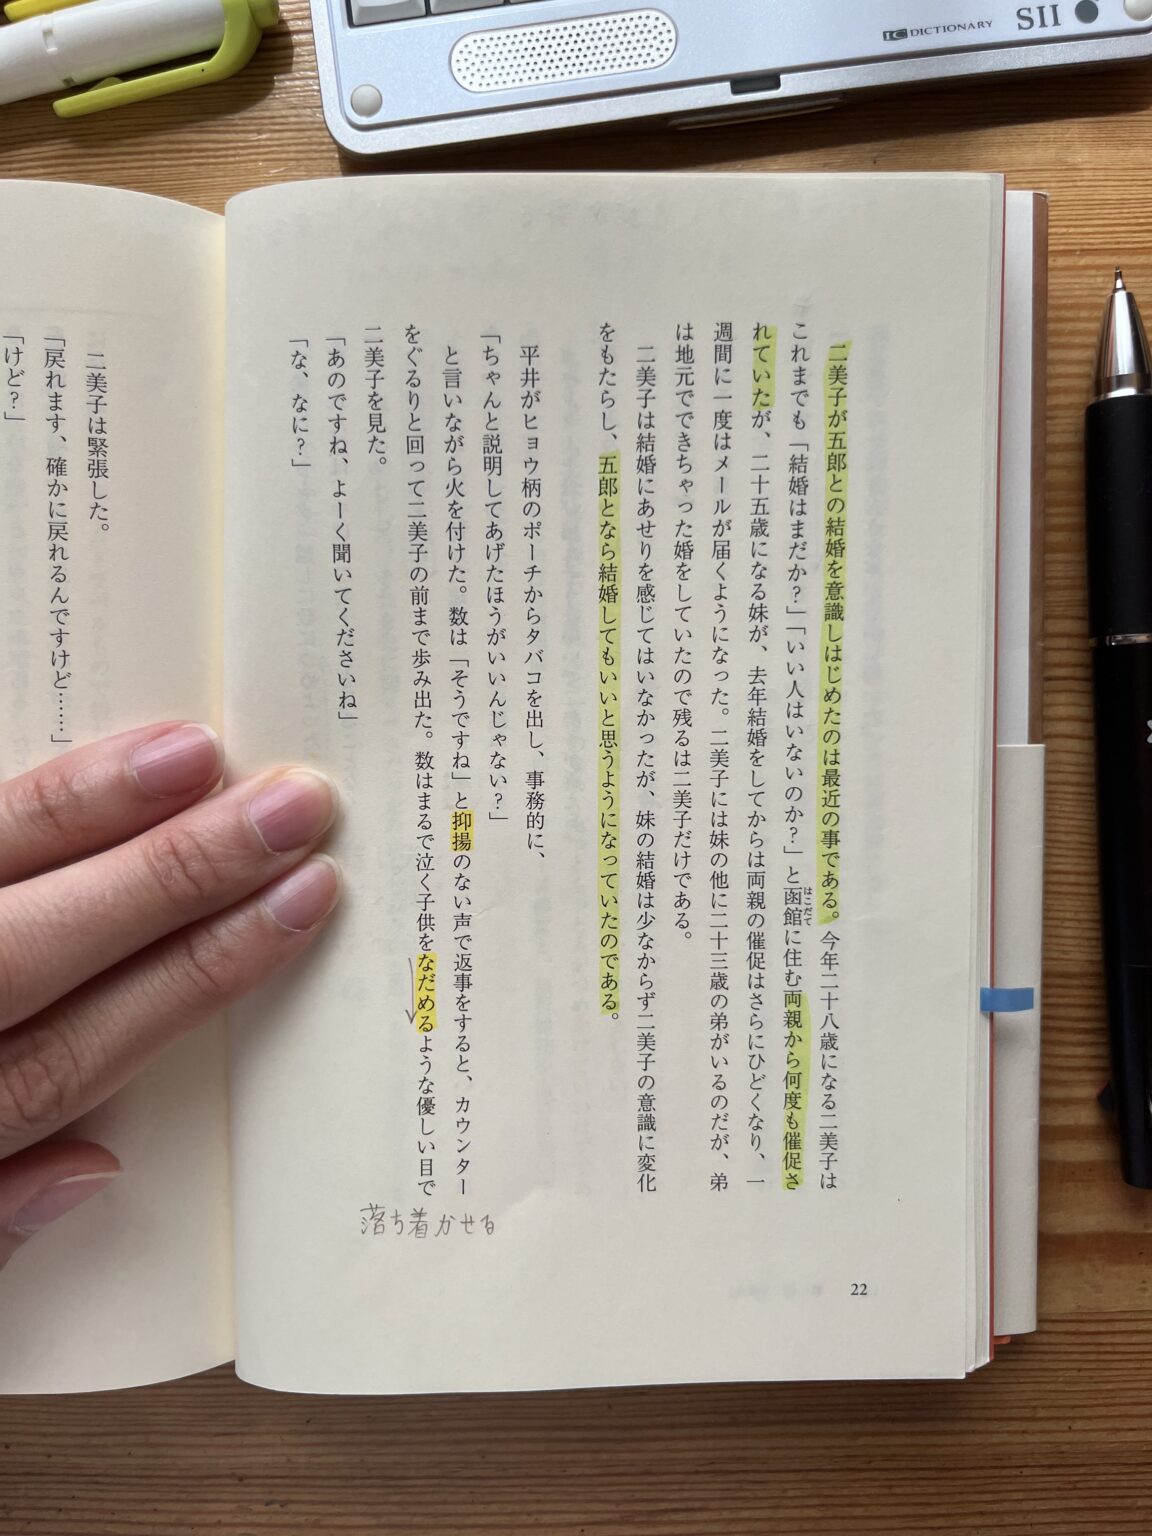 IC DICTIONARY
SII
二美子が五郎との結婚を意識しはじめたのは最近の事である。今年二十八歳になる二美子は
これまでも「結婚はまだか？」「いい人はいないのか？」と函館に住む両親から何度も催促さ
はこだて
れていたが、二十五歳になる妹が、去年結婚をしてからは両親の催促はさらにひどくなり、一
週間に一度はメールが届くようになった。二美子には妹の他に二十三歳の弟がいるのだが、弟
は地元でできちゃった婚をしていたので残るは二美子だけである。
二美子は結婚にあせりを感じてはいなかったが、妹の結婚は少なからず二美子の意識に変化
をもたらし、五郎となら結婚してもいいと思うようになっていたのである。
平井がヒョウ柄のポーチからタバコを出し、事務的に、
「ちゃんと説明してあげたほうがいいんじゃない？」
と言いながら火を付けた。数は「そうですね」と抑揚のない声で返事をすると、カウンター
をぐるりと回って二美子の前まで歩み出た。数はまるで泣く子供をなだめるような優しい目で
落ち着かせる
二美子を見た。
「あのですね、よーく聞いてくださいね」
「な、なに？」
22
二美子は緊張した。
「戻れます、確かに戻れるんですけど……」
「けど？」